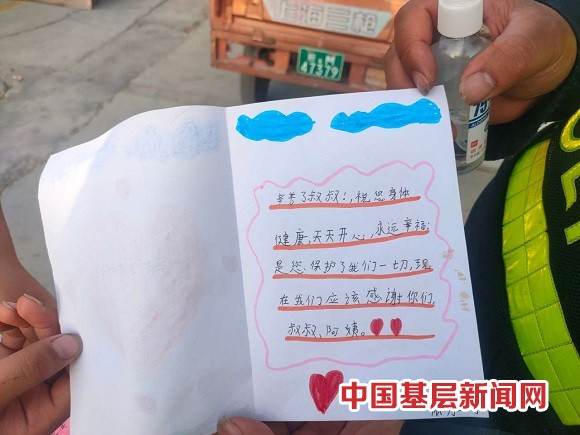 47379
75
辛苦了叔叔：，祝您身体
健康，天天开心，永远幸福，
是您保护了我们一切，现
在我们应该感谢你们，
叔叔，阿姨。
中国基层新闻网